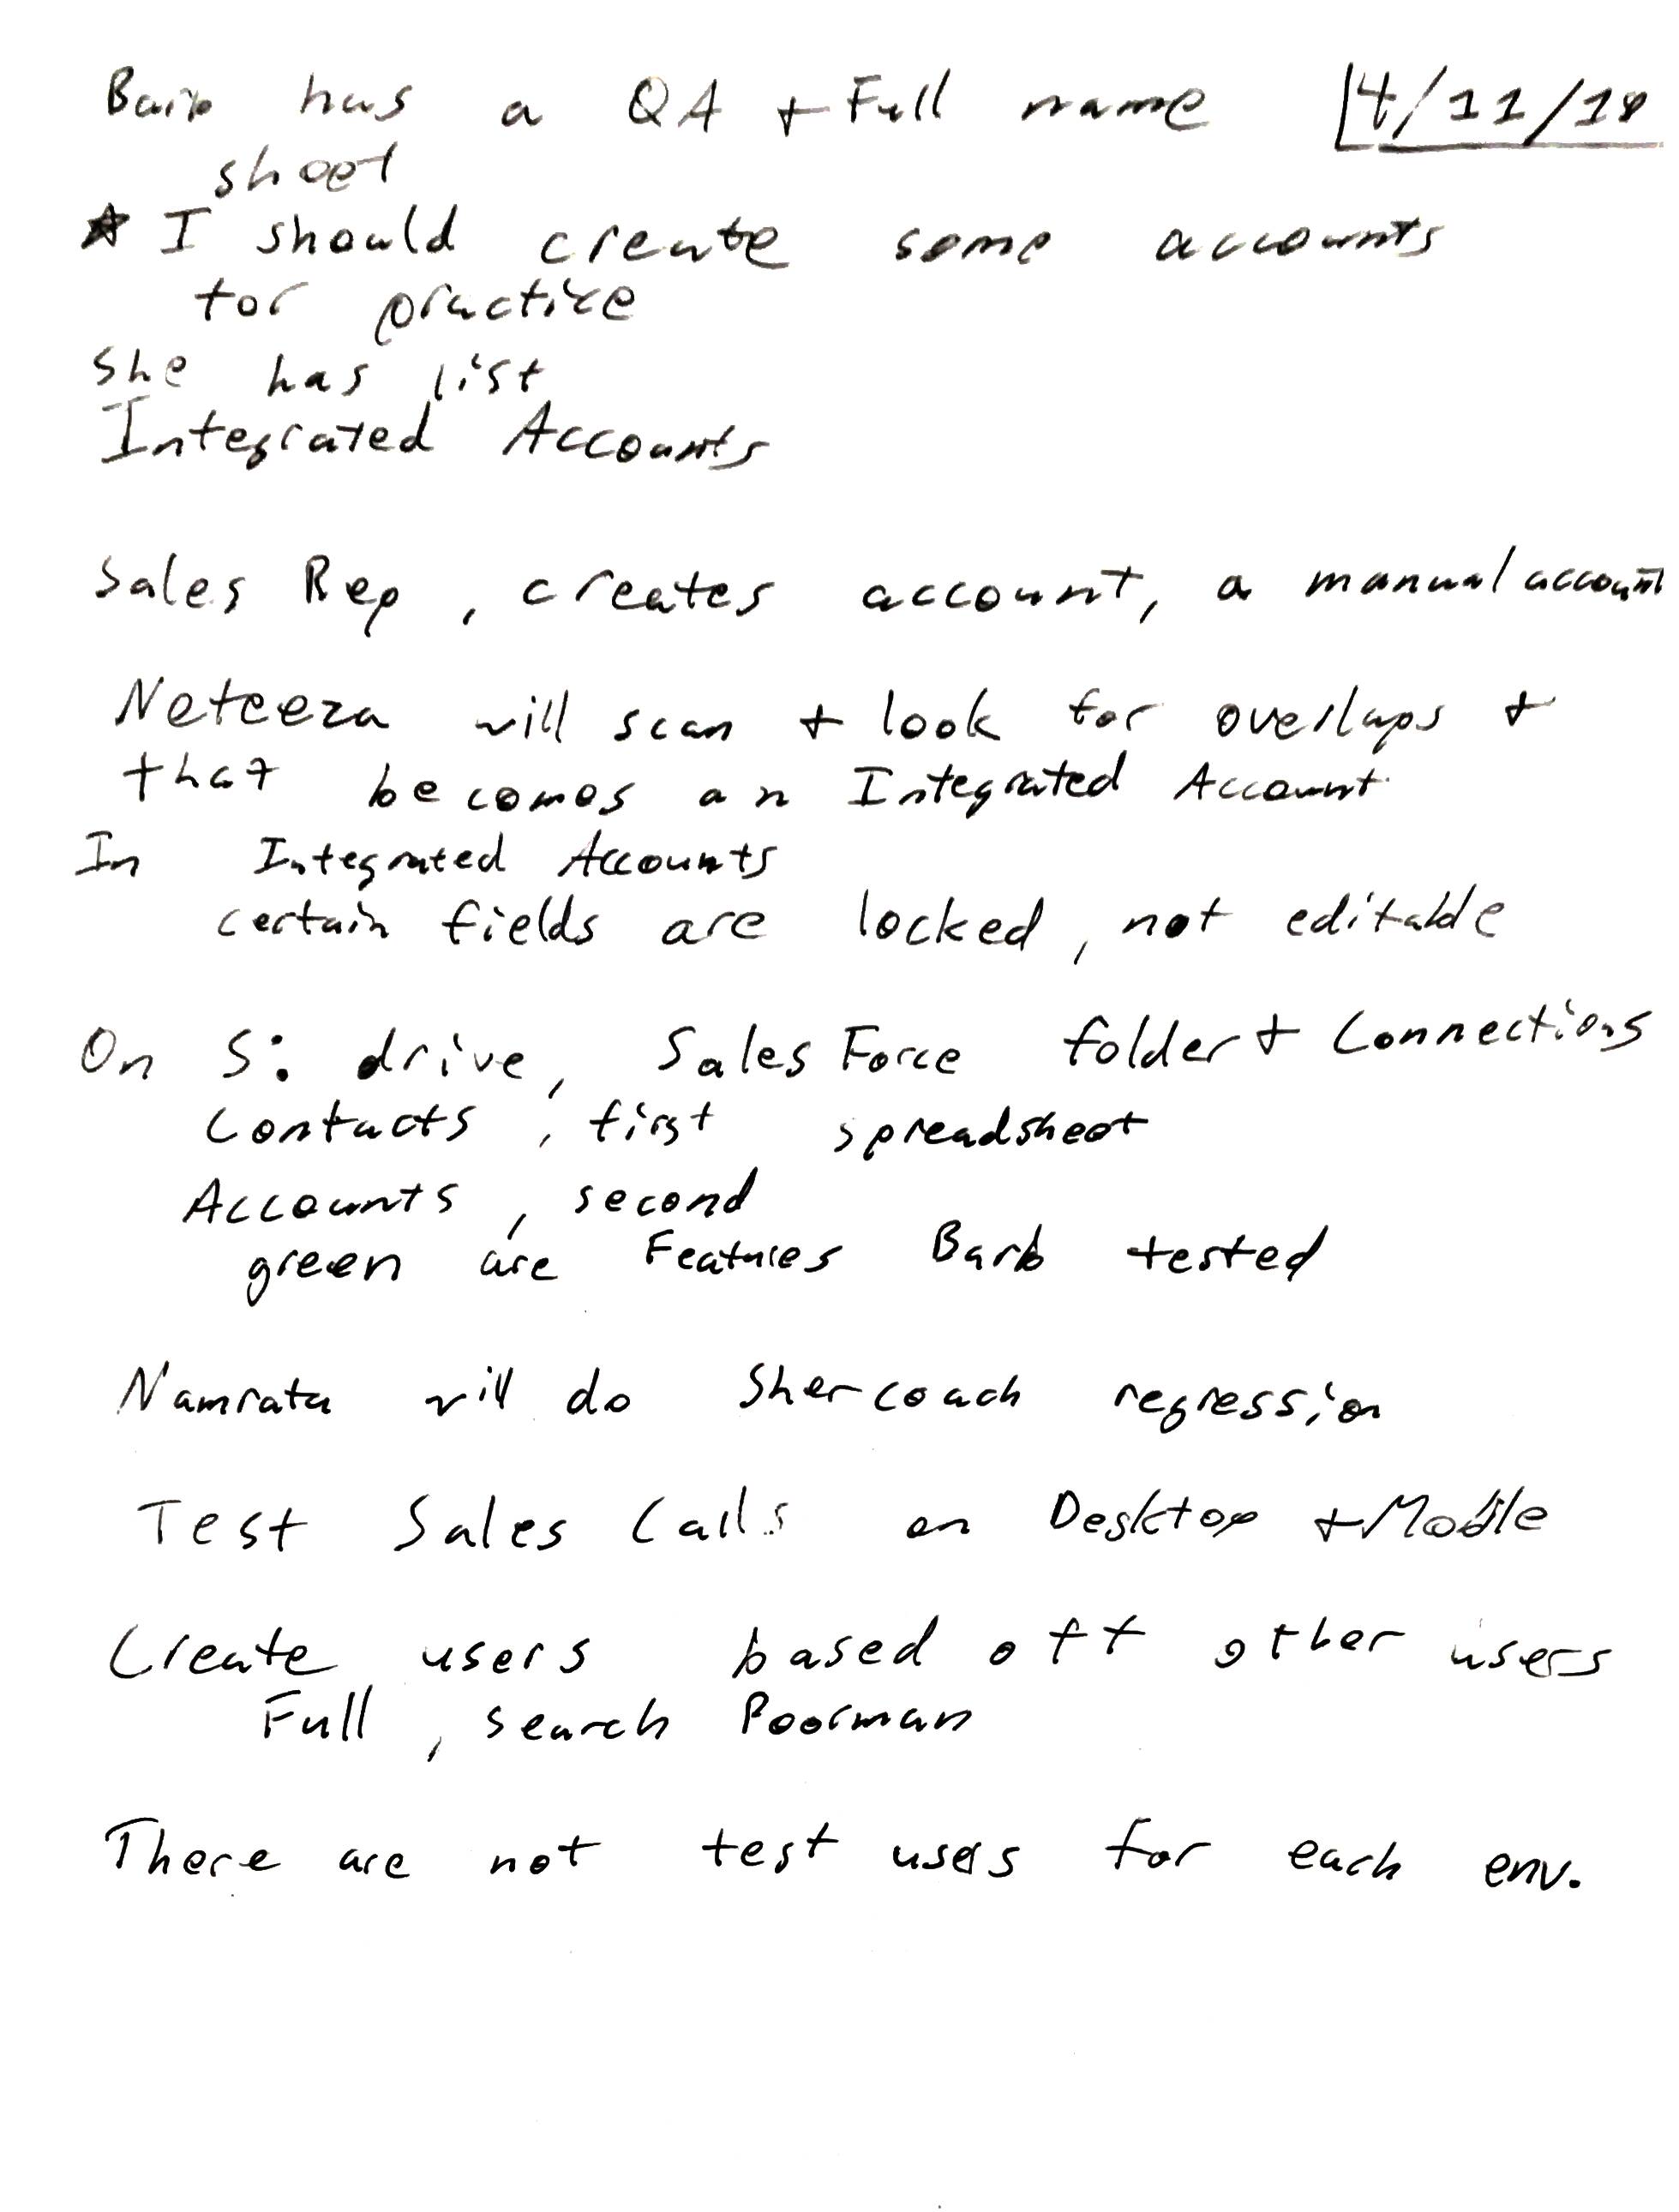 Barb has a QA + Full name 4/11/18
sheet
★ I should create some accounts
for practice
She has list
Integrated Accounts
Sales Rep, creates account, a manual account
Neteeza will scan + look for overlaps +
that becomes an Integrated Account
In Integrated Accounts
certain fields are locked, not editable
On S: drive, Sales Force folder + Connections
Contacts, first spreadsheet
Accounts, second
green are Features Barb tested
Namrata will do Shercoach regression
Test Sales Calls on Desktop + Mobile
Create users based off other users
Full, search Poorman
There are not test users for each env.